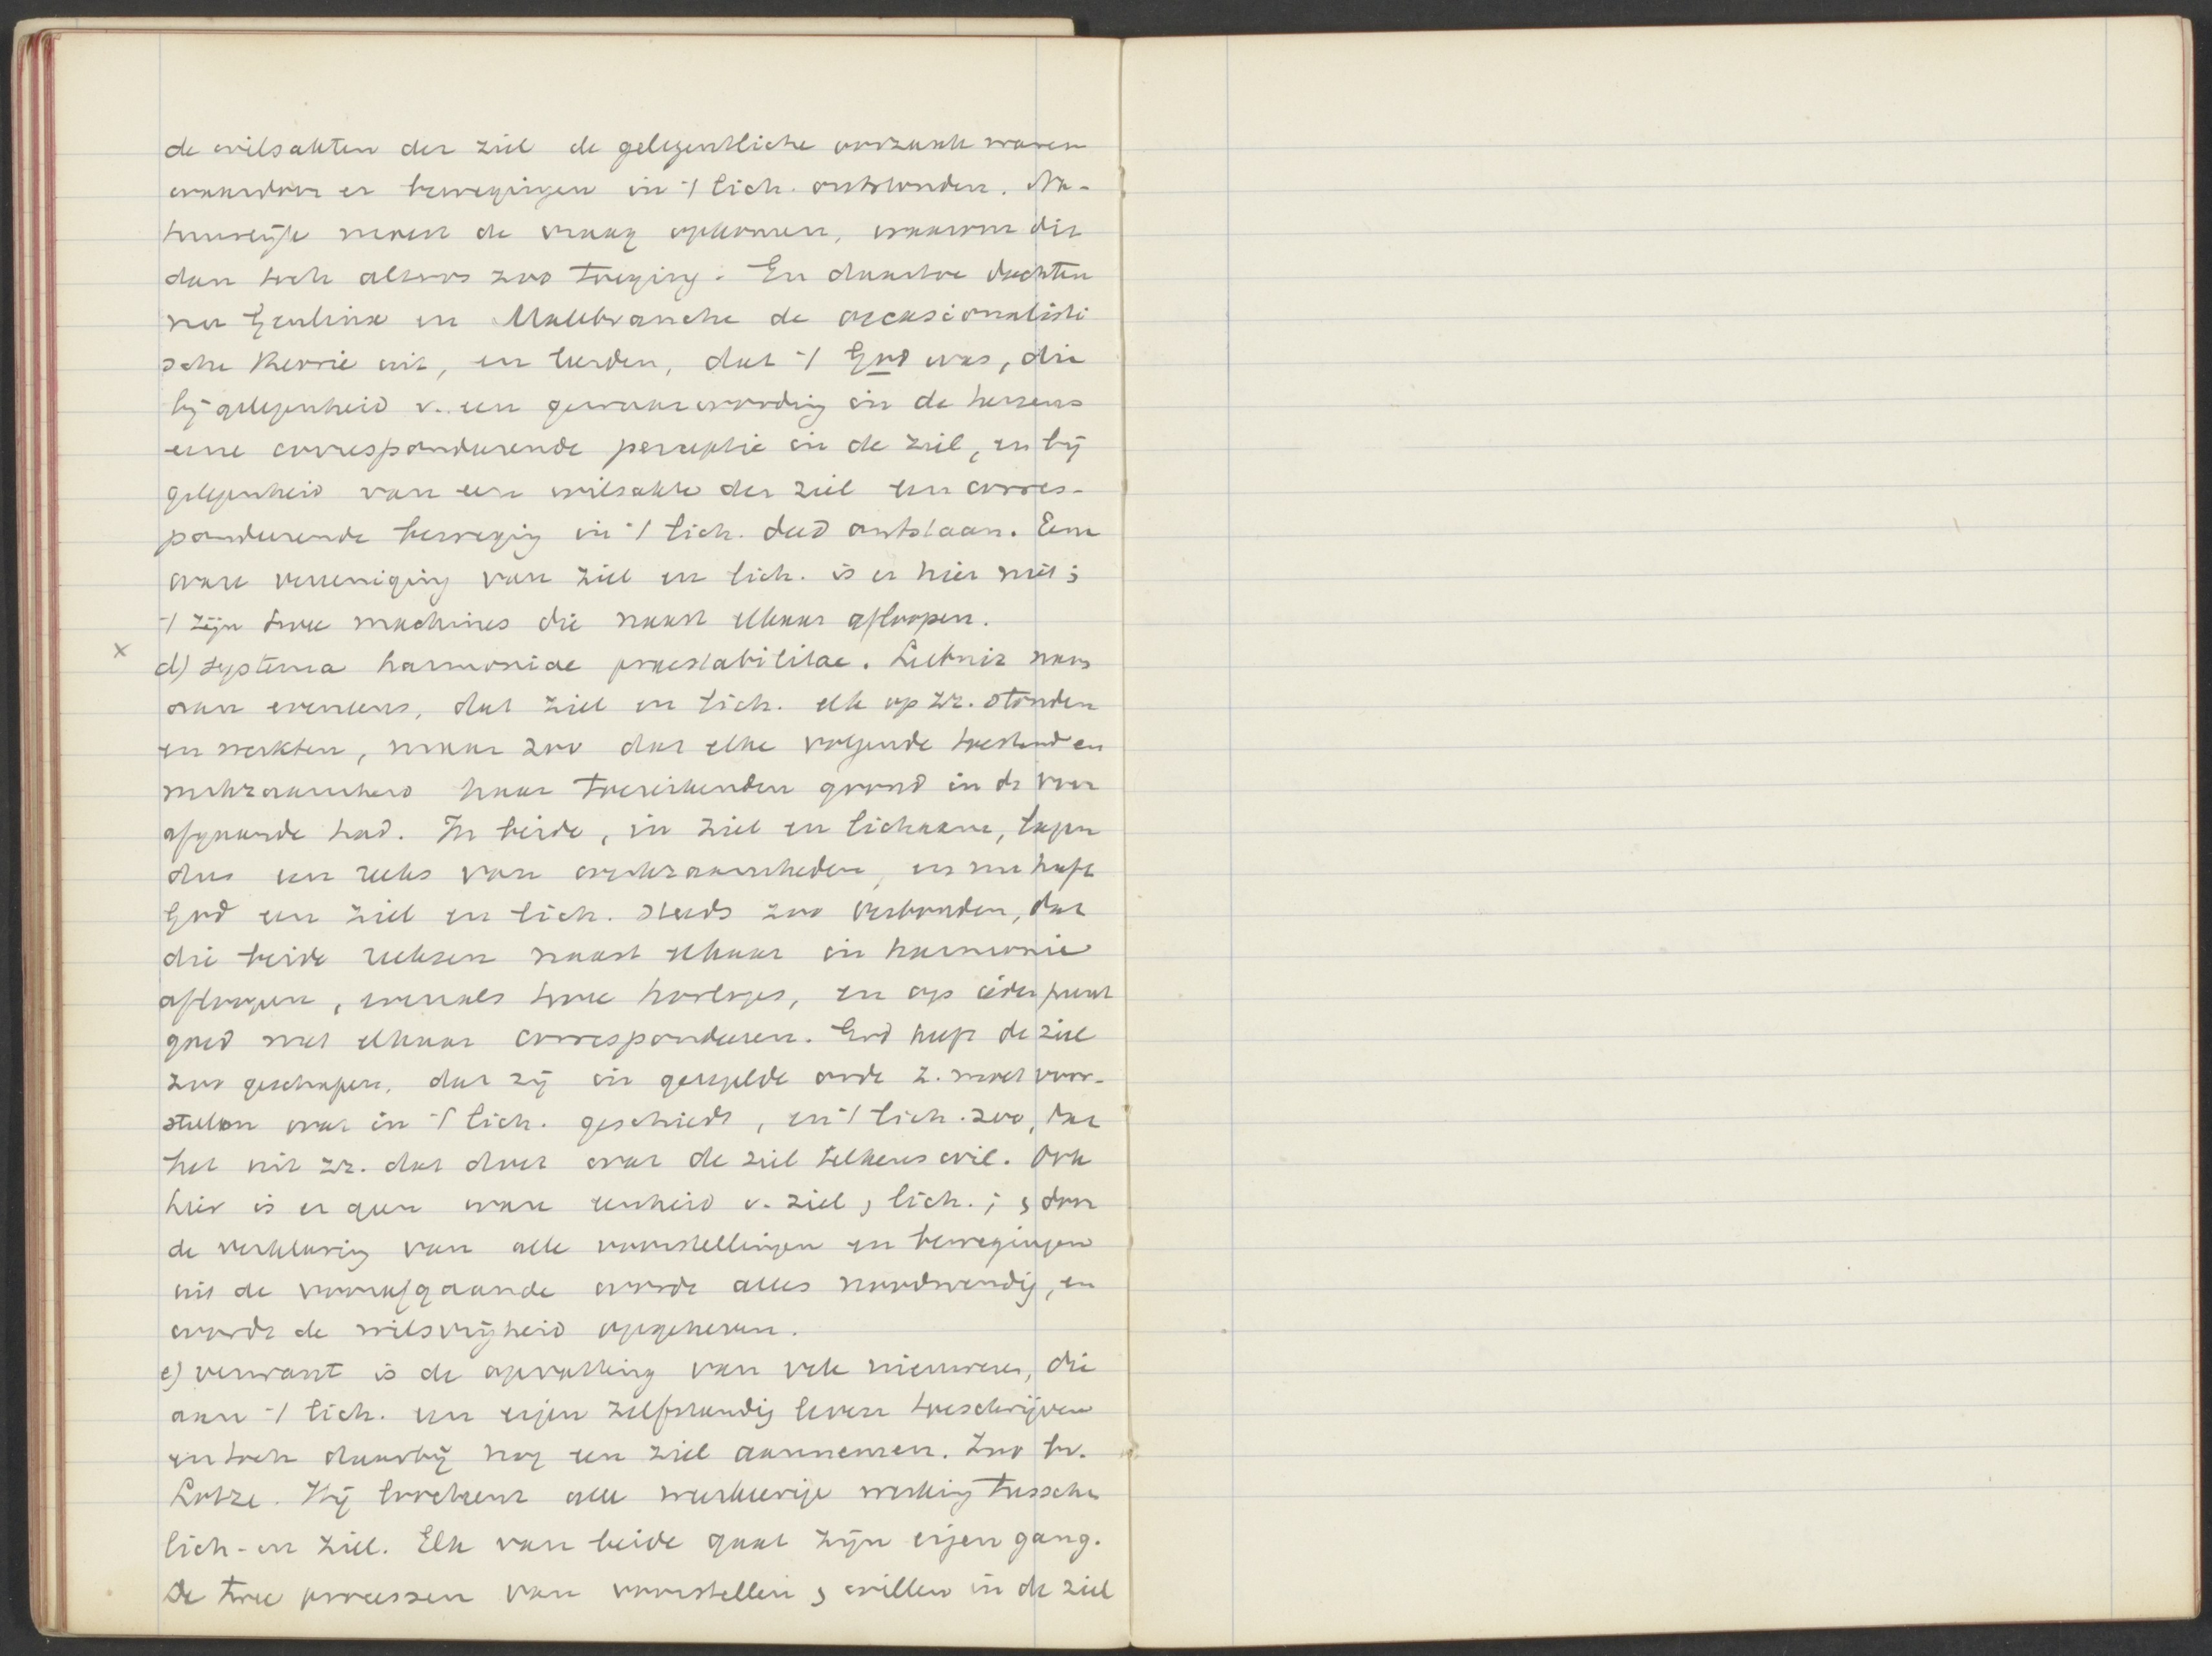 de wilsakten der ziel de gelegentliche oorzaak waren
waardoor er bewegingen in 't lich. ontstonden. Na-
tuurlijk moest de vraag opkomen, waarom dit
dan toch altoos zoo toeging. En daartoe dachten
nu Geulinx en Malebranche de occasionalisti
sche theorie uit, en leerden, dat 't God was, die
bij gelegenheid v. een gewaarwording in de hersens
eene correspondeerende perceptie in de ziel, en bij
gelegenheid van een wilsakte der ziel een corres-
pondeerende beweging in 't lich. deed ontstaan. Eene
ware vereeniging van ziel en lich. is er hier niet;
't zijn twee machines die naast elkaar afloopen.
x d) systema harmoniae praestabilitae. Leibniz nam
aan eveneens, dat ziel en lich. elk op zz. stonden
en werkten, maar zoo dat elke volgende toestand en
werkzaamheid haar toereikenden grond in de voor
afgaande had. In beide, in ziel en lichaam, liepen
dus een reeks van werkzaamheden, en nu heeft
God een ziel en lich. steeds zoo verbonden, dat
die beide reeksen naast elkaar in harmonie
afloopen, evenals twee horloges, en op ieder punt
goed met elkaar correspondeeren. God heeft de ziel
zoo geschapen, dat zij in geregelde orde z. moet voor-
stellen wat in 't lich. geschiedt, en 't lich. zoo, dat
het uit zz. dat doet wat de ziel telkens wil. Ook
hier is er geen ware eenheid v. ziel, lich.; , door
de verklaring van alle voorstellingen en bewegingen
uit de voorafgaande wordt alles noodwendig, en
wordt de wilsvrijheid opgeheven.
e) verwant is de opvatting van vele nieuweren, die
aan 't lich. een eigen zelfstandig leven toeschrijven
en toch daarbij nog een ziel aannemen. Zoo bv.
Lotze. Hij loochent alle wederkeerige werking tussche
lich- en ziel. Elk van beide gaat zijn eigen gang.
De twee processen van voorstellen , willen in de ziel